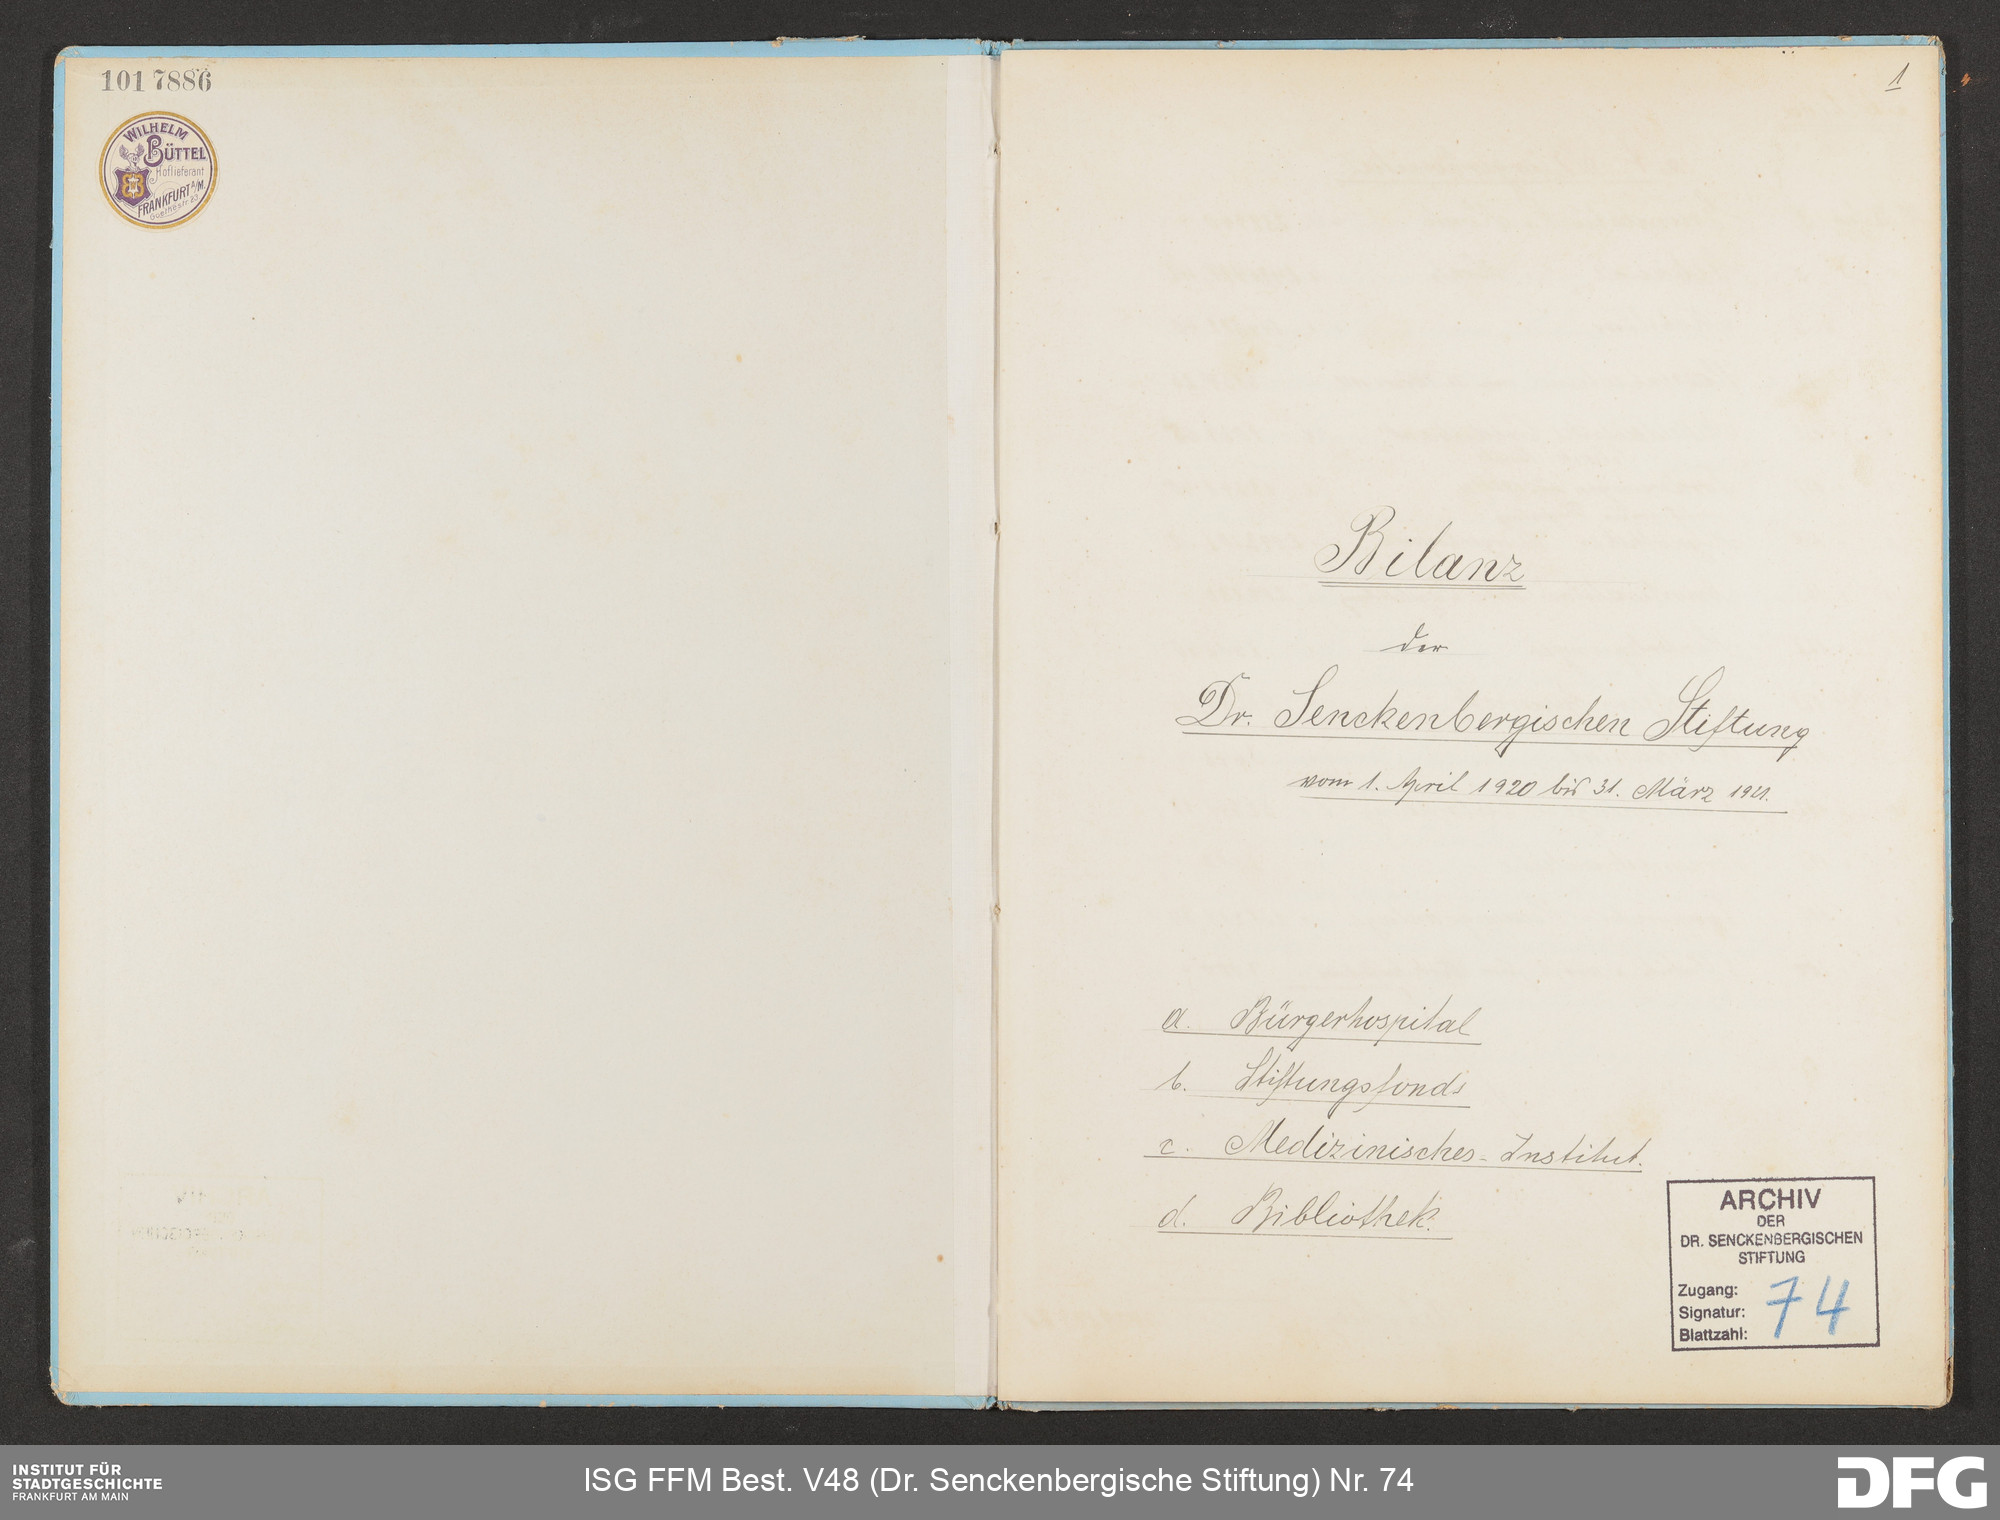 101 7886
WILHELM
BÜTTEL
Hoflieferant
FRANKFURT A/M.
Goethestr.
1
Bilanz
der
Dr. Senckenbergischen Stiftung
vom 1. April 1920 bis 31. März 1921.
a. Bürgerhospital
b. Stiftungsfonds
c. Medizinisches-Institut.
d. Bibliothek.
ARCHIV
DER
DR. SENCKENBERGISCHEN
STIFTUNG
Zugang:
Signatur: 74
Blattzahl:
INSTITUT FÜR
STADTGESCHICHTE
FRANKFURT AM MAIN
ISG FFM Best. V48 (Dr. Senckenbergische Stiftung) Nr. 74
DFG